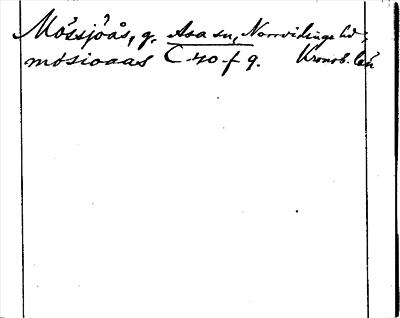 Mössjöås, g. Asa sn, Norrvidinge hd,
mósioaas C-40-f 9. Kronob. län